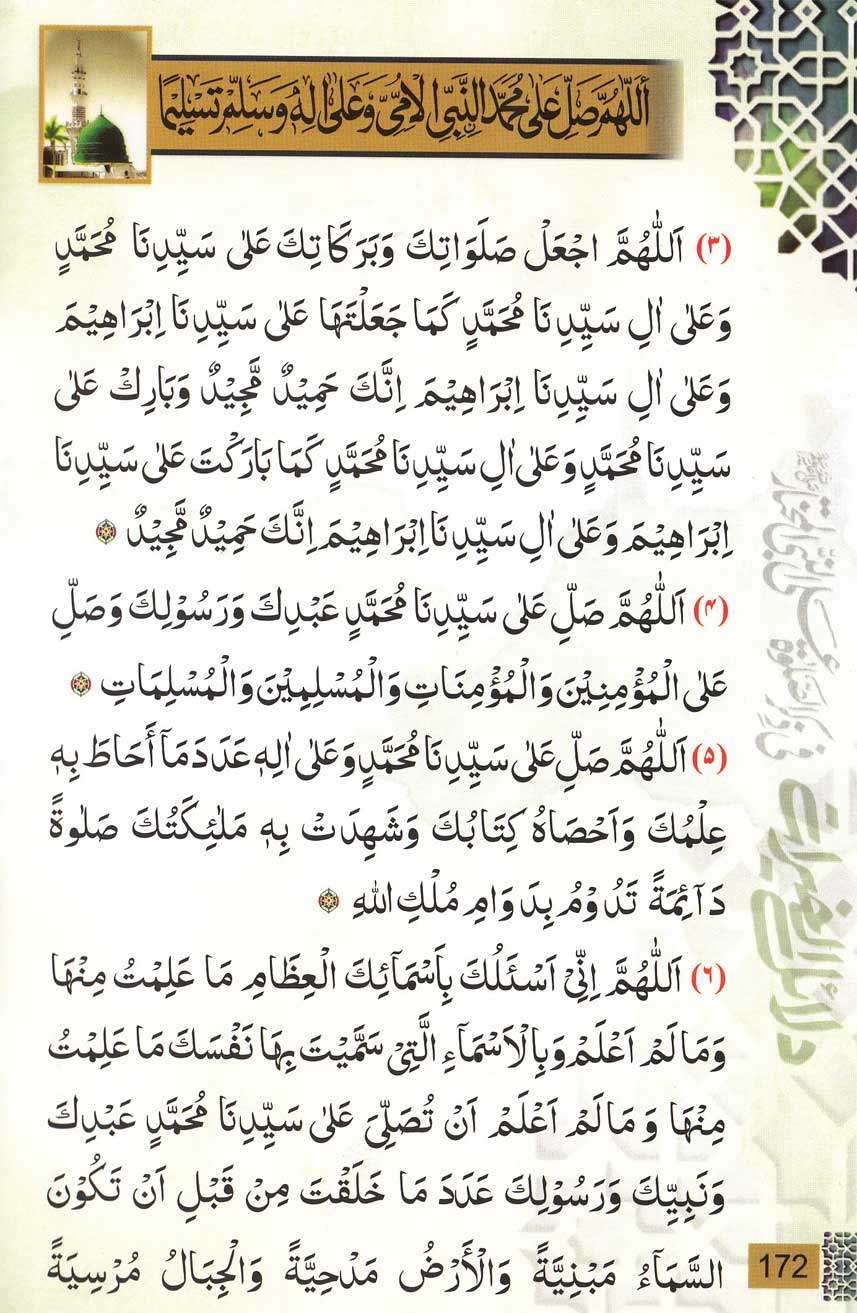 أَللّٰهُمَّ صَلِّ عَلٰى مُحَمَّدِ النَّبِيِّ الْاُمِّيِّ وَعَلٰى اٰلِهٖ وَسَلِّمْ تَسْلِيْمًا
(۳) اَللّٰهُمَّ اجْعَلْ صَلَوَاتِكَ وَبَرَكَاتِكَ عَلٰى سَيِّدِنَا مُحَمَّدٍ
وَعَلٰى اٰلِ سَيِّدِنَا مُحَمَّدٍ كَمَا جَعَلْتَهَا عَلٰى سَيِّدِنَا اِبْرَاهِيْمَ
وَعَلٰى اٰلِ سَيِّدِنَا اِبْرَاهِيْمَ اِنَّكَ حَمِيْدٌ مَّجِيْدٌ وَبَارِكْ عَلٰى
سَيِّدِنَا مُحَمَّدٍ وَعَلٰى اٰلِ سَيِّدِنَا مُحَمَّدٍ كَمَا بَارَكْتَ عَلٰى سَيِّدِنَا
اِبْرَاهِيْمَ وَعَلٰى اٰلِ سَيِّدِنَا اِبْرَاهِيْمَ اِنَّكَ حَمِيْدٌ مَّجِيْدٌ
(۴) اَللّٰهُمَّ صَلِّ عَلٰى سَيِّدِنَا مُحَمَّدٍ عَبْدِكَ وَرَسُوْلِكَ وَصَلِّ
عَلَى الْمُؤْمِنِيْنَ وَالْمُؤْمِنَاتِ وَالْمُسْلِمِيْنَ وَالْمُسْلِمَاتِ
(۵) اَللّٰهُمَّ صَلِّ عَلٰى سَيِّدِنَا مُحَمَّدٍ وَعَلٰى اٰلِهٖ عَدَدَ مَآ أَحَاطَ بِهٖ
عِلْمُكَ وَاَحْصَاهُ كِتَابُكَ وَشَهِدَتْ بِهٖ مَلٰئِكَتُكَ صَلٰوةً
دَآئِمَةً تَدُوْمُ بِدَوَامِ مُلْكِ اللّٰهِ
(۶) اَللّٰهُمَّ اِنِّىْ اَسْئَلُكَ بِاَسْمَآئِكَ الْعِظَامِ مَا عَلِمْتُ مِنْهَا
وَمَالَمْ اَعْلَمْ وَبِالْاَسْمَآءِ الَّتِىْ سَمَّيْتَ بِهَا نَفْسَكَ مَا عَلِمْتُ
مِنْهَا وَمَالَمْ اَعْلَمْ اَنْ تُصَلِّىَ عَلٰى سَيِّدِنَا مُحَمَّدٍ عَبْدِكَ
وَنَبِيِّكَ وَرَسُوْلِكَ عَدَدَ مَا خَلَقْتَ مِنْ قَبْلِ اَنْ تَكُوْنَ
السَّمَآءُ مَبْنِيَّةً وَالْأَرْضُ مَدْحِيَّةً وَالْجِبَالُ مُرْسِيَةً
172
دلائل الخيرات